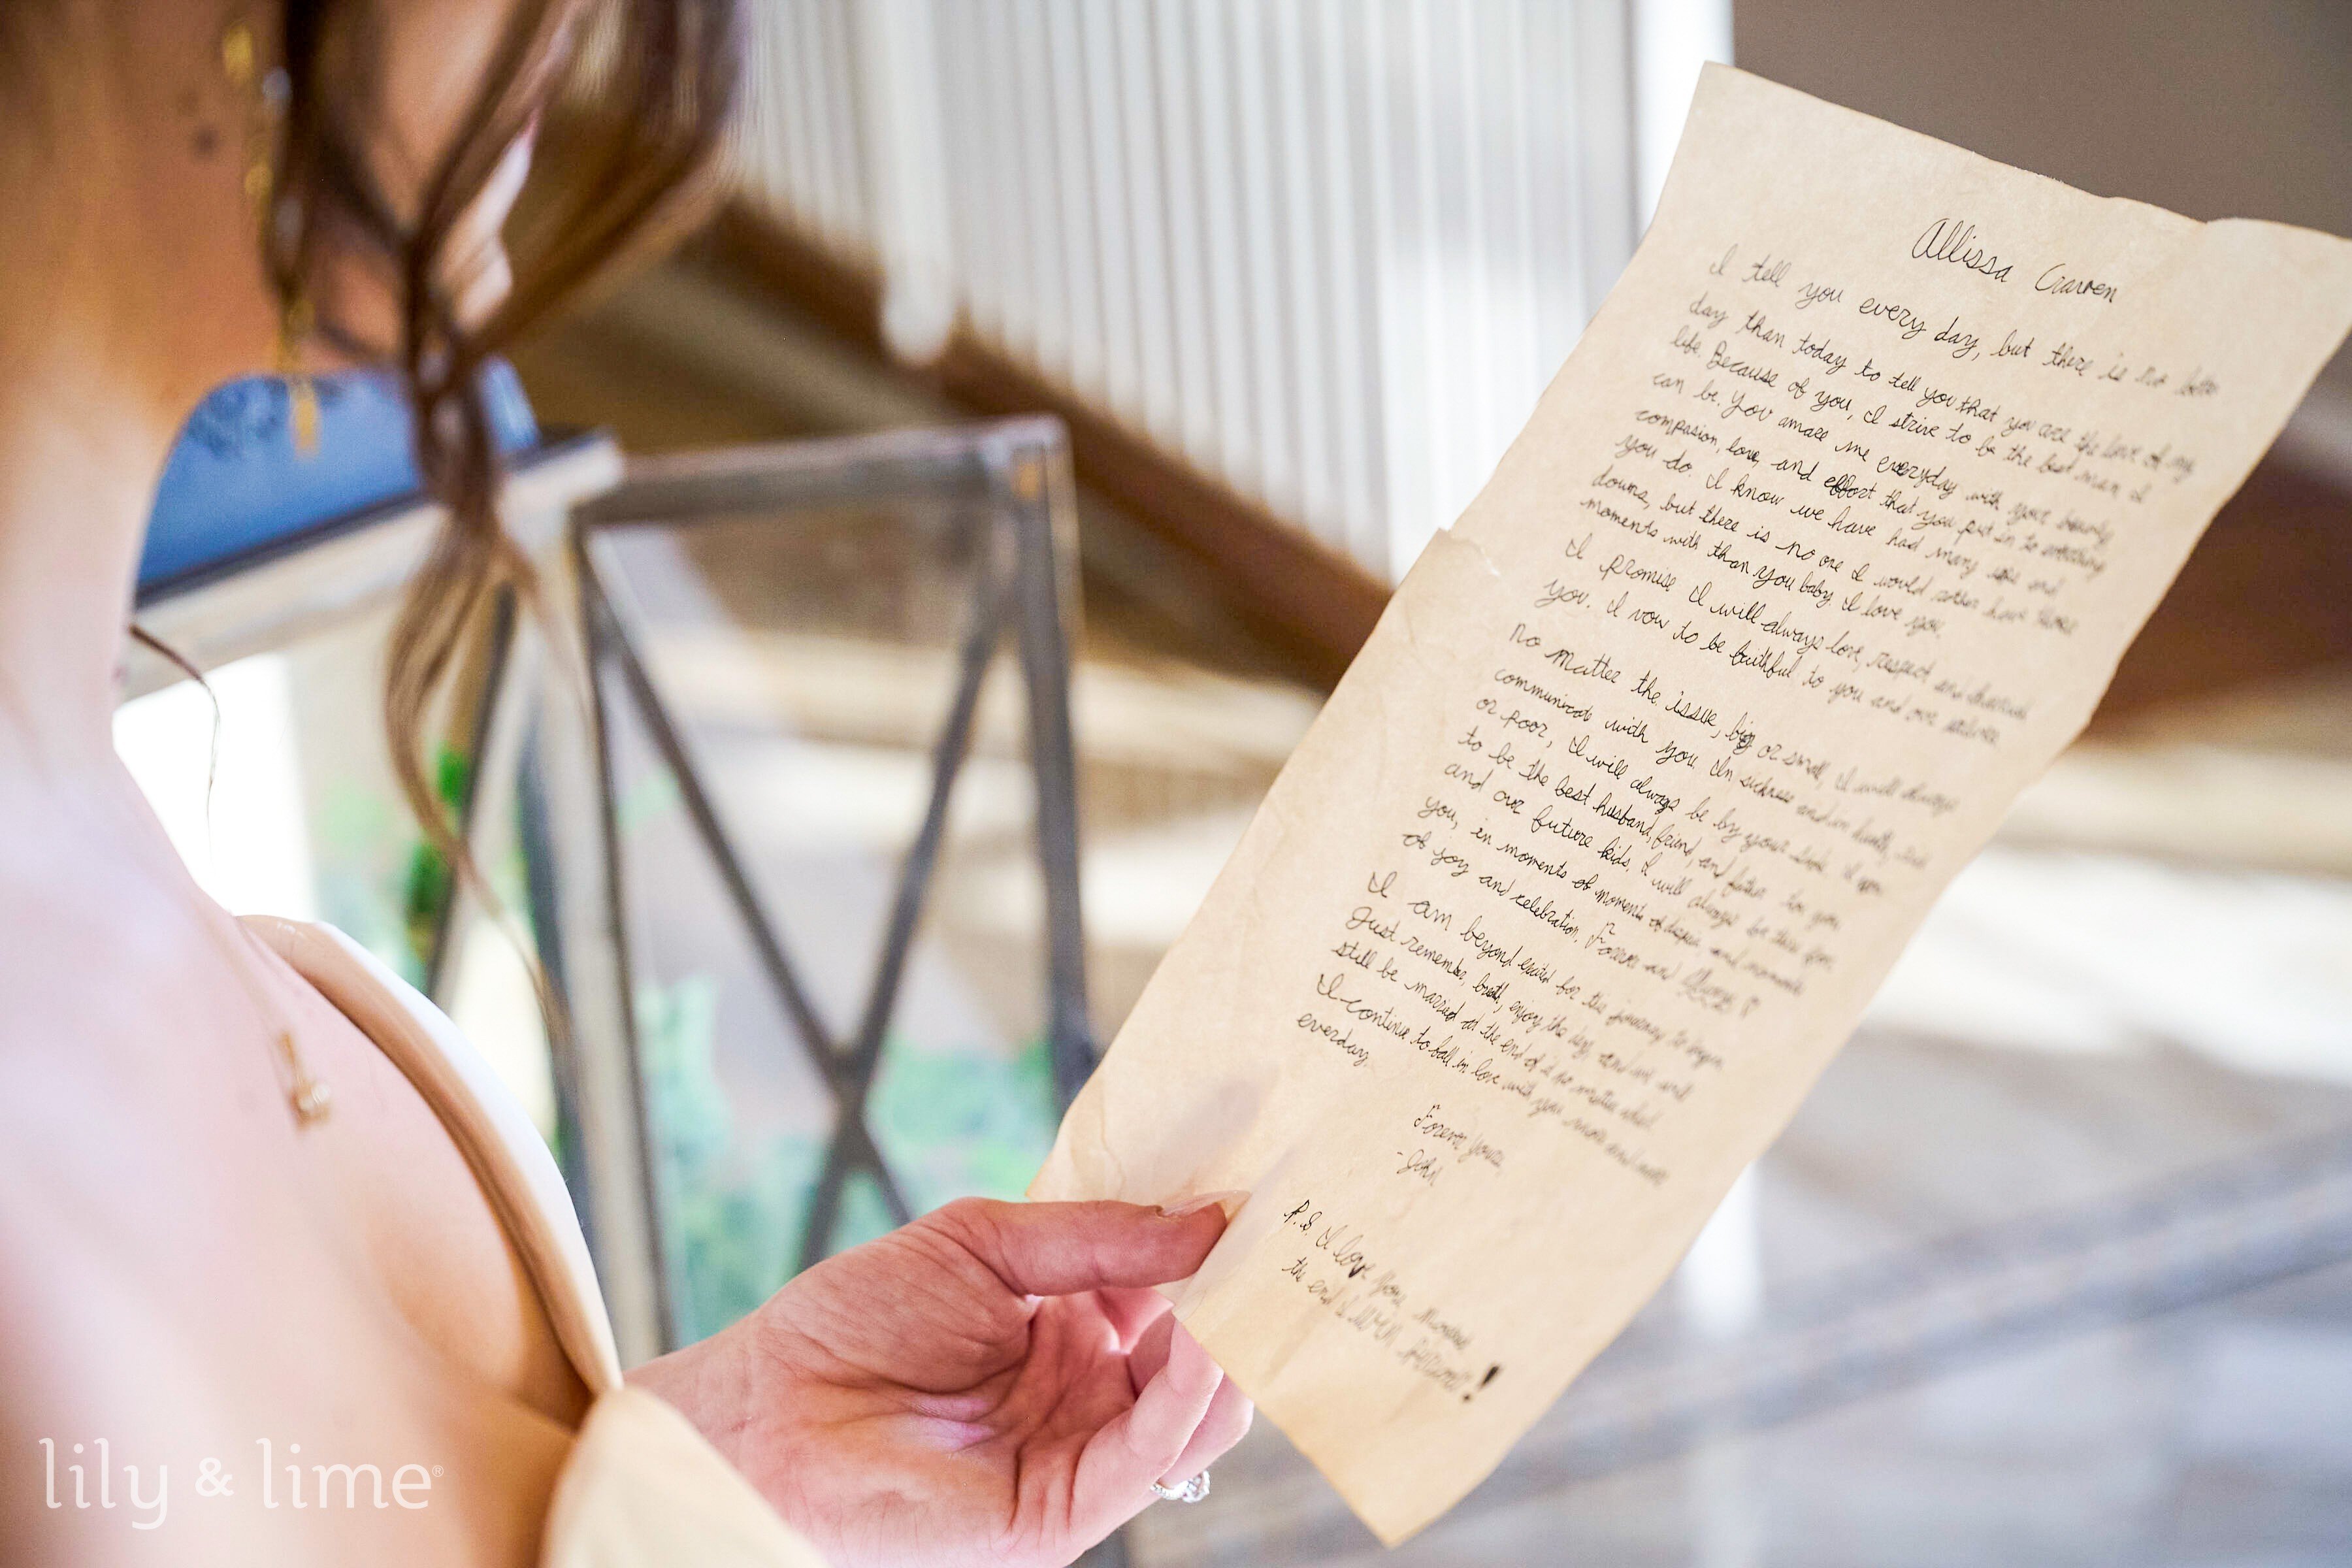 Allissa
I tell you every day, but there is no
day than today to tell you that you are the love of my
life. Because of you, I strive to be the best man I
can be. You amaze me everyday with your
compasion, love, and effort that you put in to
you do. I know we have had many ups and
downs, but there is no one I would rather have those
moments with than you baby. I love you.
I promise I will always love, respect and
you. I vow to be faithful to you and our
No matter the issue, big or small, I will always
communicate with you. In sickness and in health,
or poor, I will always be by your side. I
to be the best husband, friend, and father to you
and our future kids. I will always be there for
you, in moments of moments of and moments
of joy and celebration. Forever and Always
I am beyond excited for this journey to begin
Just remember, breath, enjoy the day and we will
still be married at the end of it no matter what
I continue to fall in love with you more and more
everday.
Forever yours,
-John
P.S. I love you,
the end I
lily & lime®